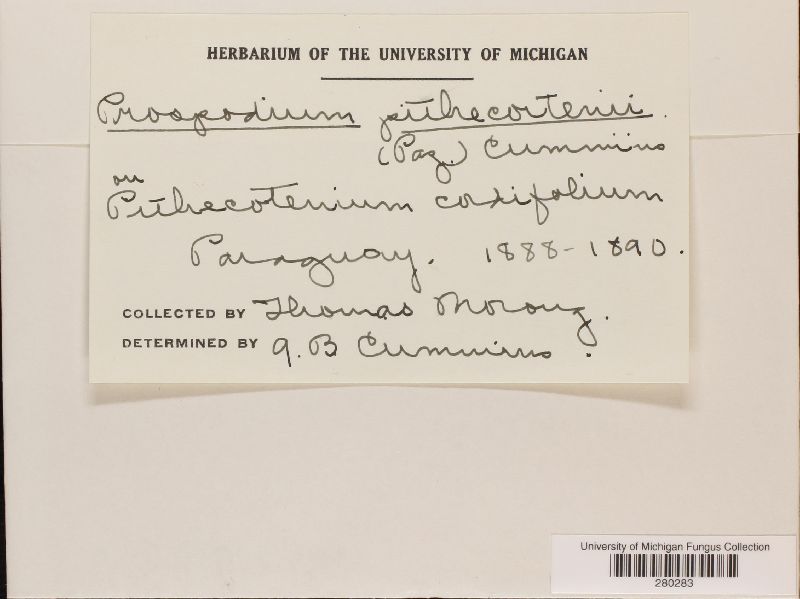 HERBARIUM OF THE UNIVERSITY OF MICHIGAN
Prospodium pithecortenii.
(Paz.) Cummins
on
Pithecotenium coxifolium
Paraguay. 1888-1890.
COLLECTED BY Thomas Morong.
DETERMINED BY G. B Cummins.
University of Michigan Fungus Collection
280283